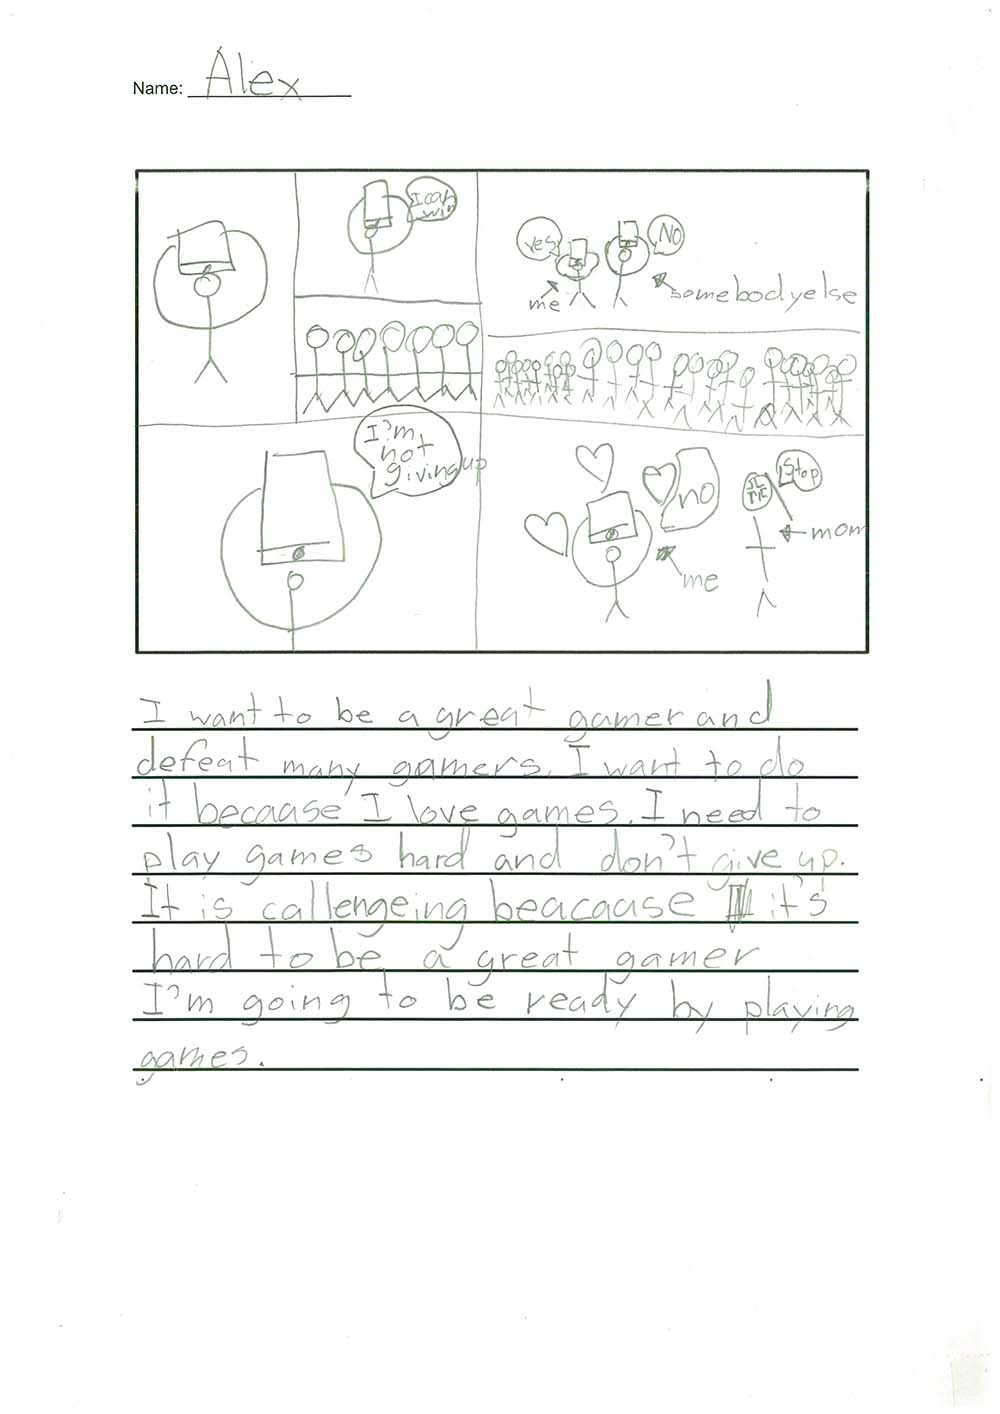 Name: Alex
I can
win
yes
No
me
somebodyelse
I'm
not
giving up
no
Stop
mom
me
I want to be a great gamer and
defeat many gamers. I want to do
it becaause I love games. I need to
play games hard and don't give up.
It is callengeing beacaause it's
hard to be a great gamer
I'm going to be ready by playing
games.